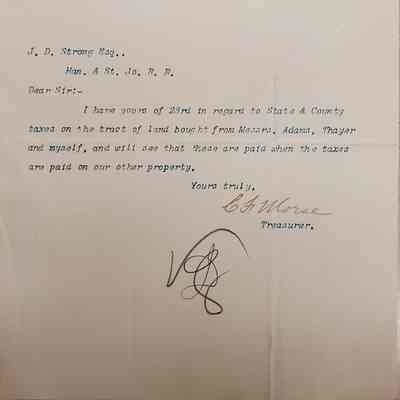 J. D. Strong Esq..
Han. & St. Jo. R. R.
Dear Sir:-
I have yours of 23rd in regard to State & County
taxes on the tract of land bought from Messrs. Adams, Thayer
and myself, and will see that these are paid when the taxes
are paid on our other property.
Yours truly,
C F Morse
Treasurer.